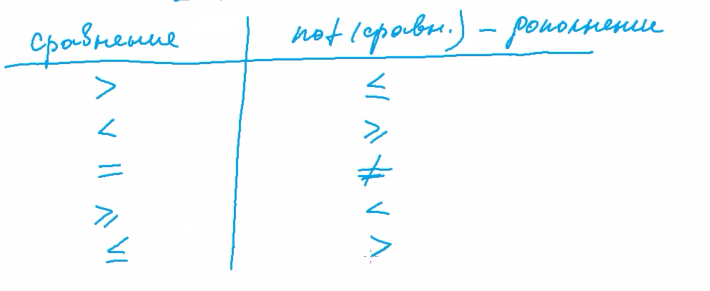 сравнение not (сравн.) – дополнение
> ≤
< ⩾
= ≠
⩾ <
≤ >